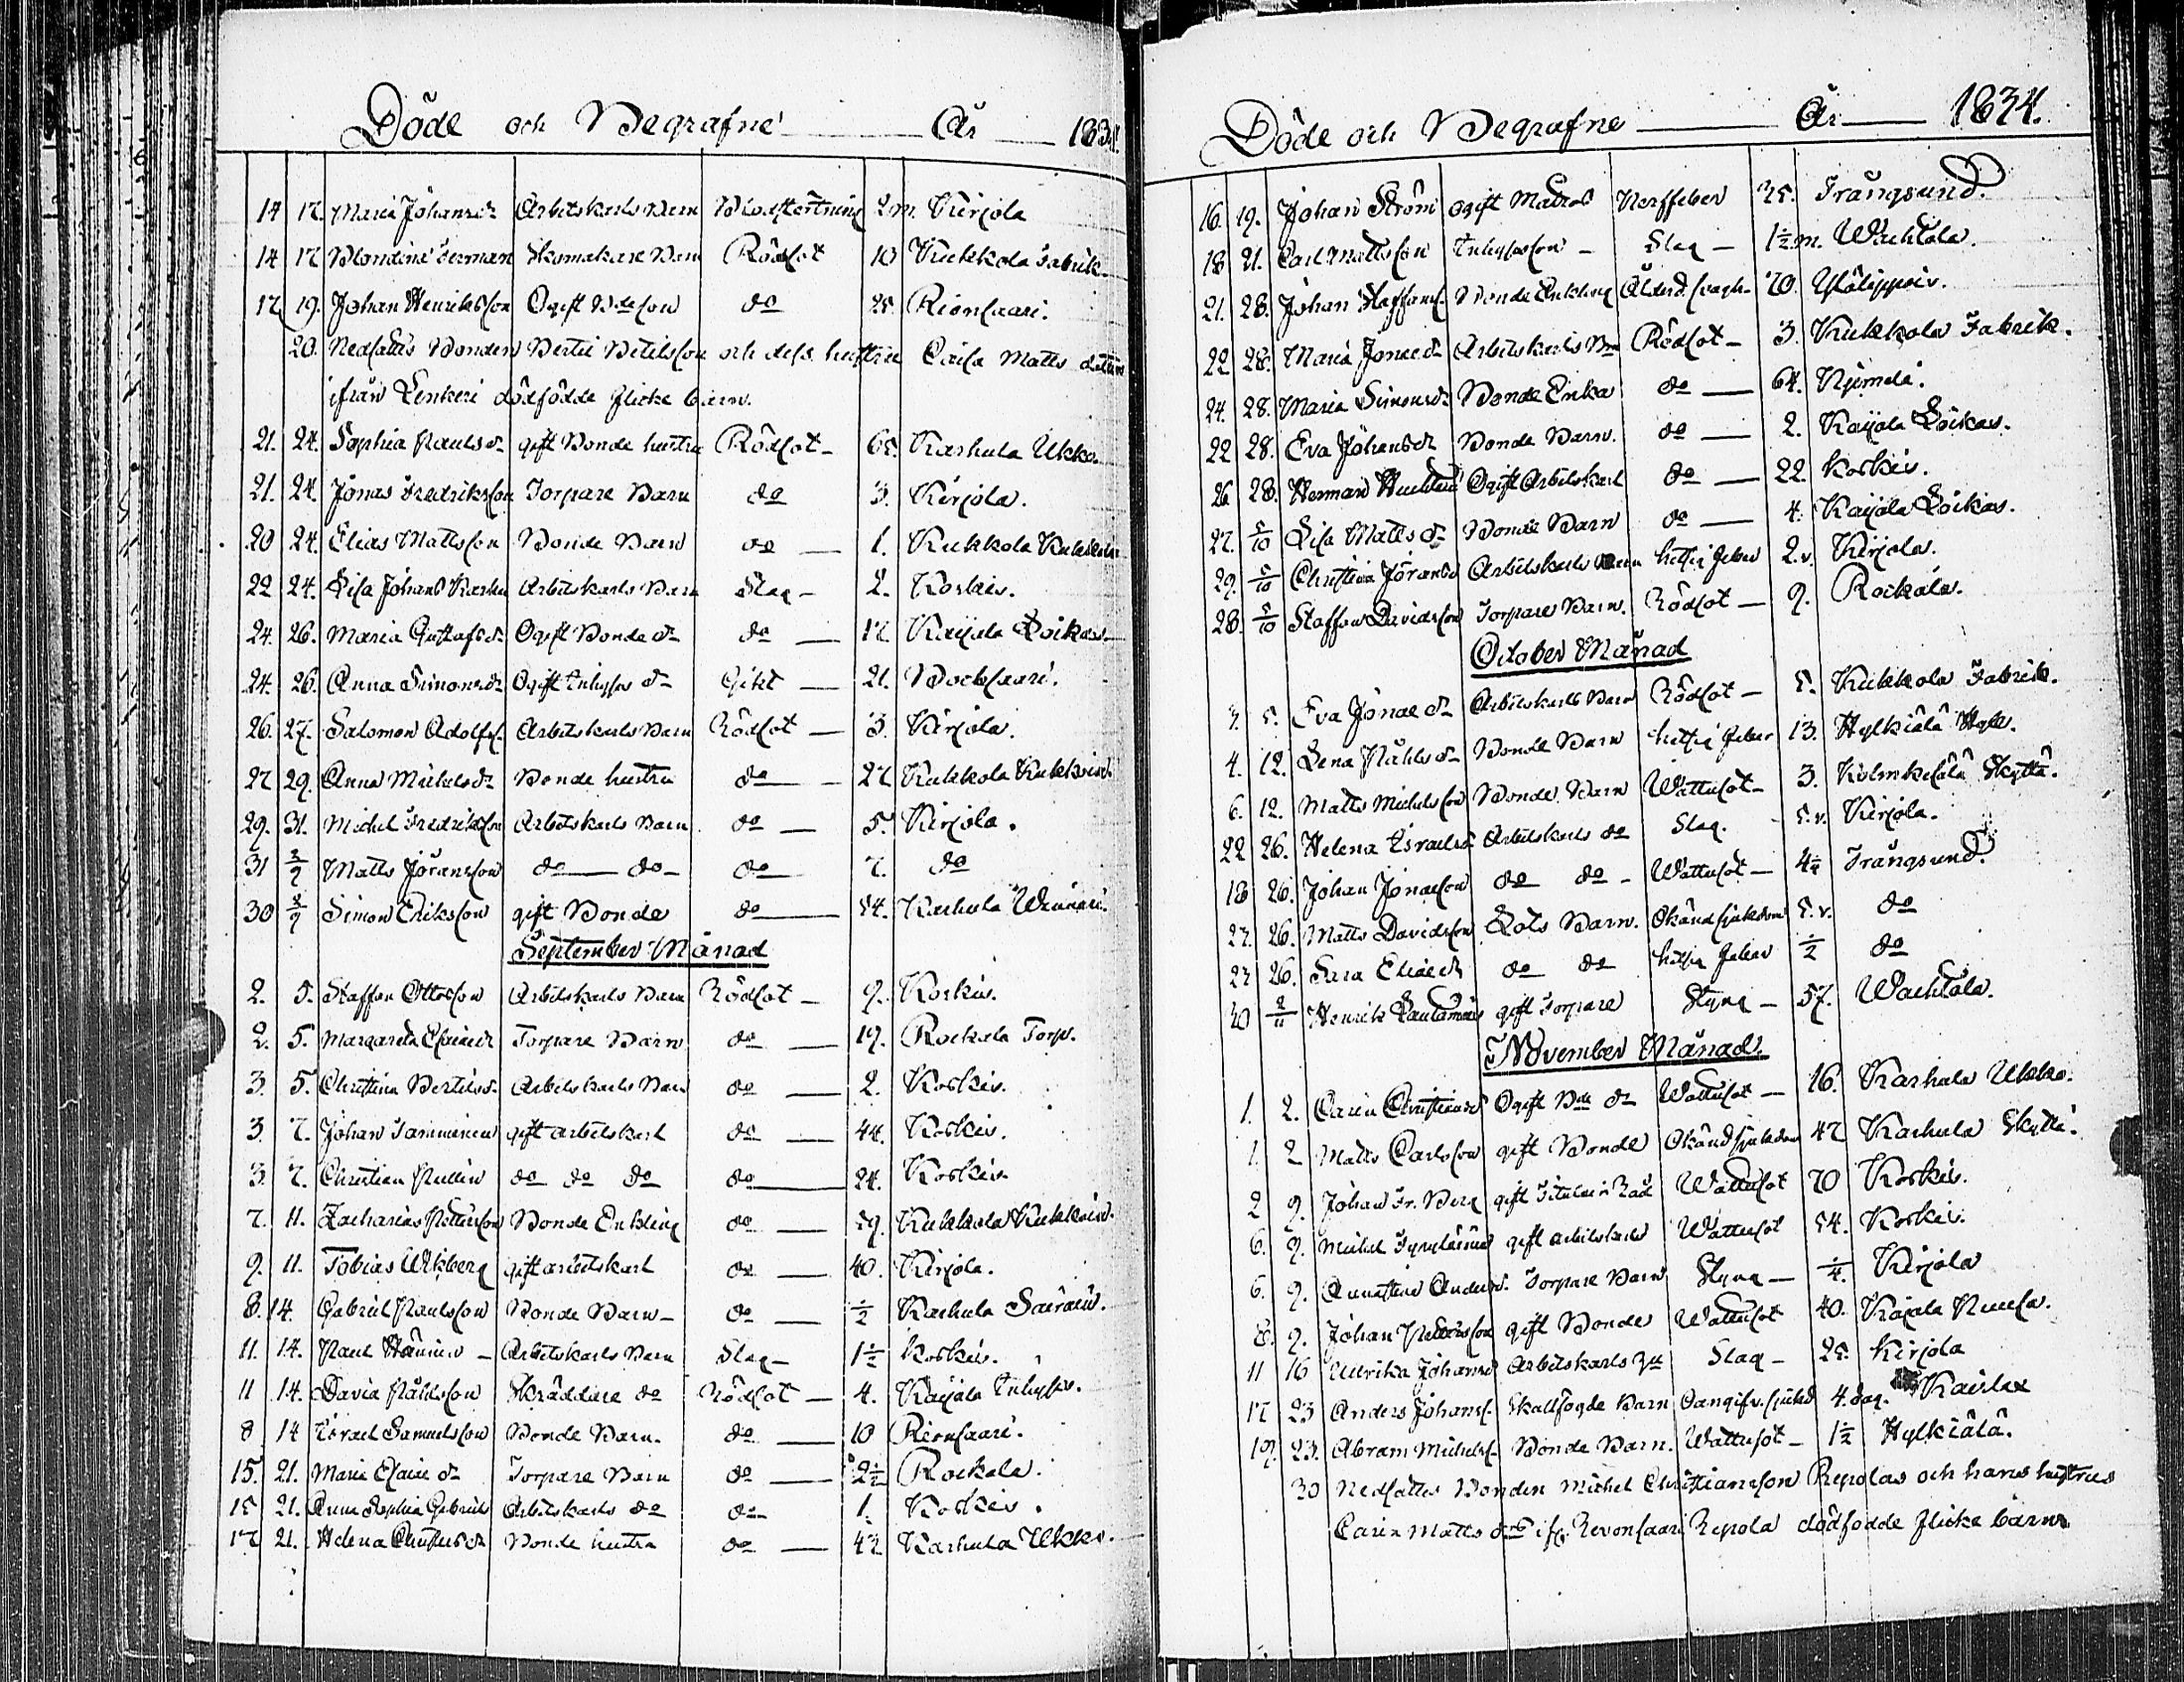 Döde och Begrafne År 1834.
14 17. Maria Johansdr Arbetskarls Barn Blodstörtning 2 m. Kirjola
14 17 Blondina Skomakare Barn Rödsot 10 Kukkola Fabrik
17 19. Johan Henriksson Ogift Bdeson do 25. Rionsaari.
20. Nedsattes Bonden Bertil Bertilsson och dess hustru Caisa Matts dotters
ifrån Lenkeri dödfödde flicke barn.
21. 24. Sophia Paulsdr gift Bonde hustru Rödsot 65. Karhula Ukko
21. 24. Jonas Fredriksson Torpare Barn do 3. Kirjola.
20 24. Elias Mattsson Bonde Barn do 1. Kukkola
22 24. Lisa Johans Arbetskarls Barn Slag 2. Koskis.
24. 26. Maria Gustafsdr Ogift Bonde dr do 17 Kaijala Loikas
24. 26. Anna Simonsdr Ogift Inhyses dr Gikt 21. Bocksaari.
26. 27. Salomon Adolfss. Arbetskarls Barn Rödsot 3. Kirjola.
27 29. Anna Michelsdr Bonde hustru do 27 Kukkola
29. 31. Michel Fredriksson Arbetskarls Barn do 5. Kirjola.
31 2/9 Matts Jöransson do do do 7. do
30 2/9 Simon Eriksson gift Bonde do 54. Karhula
September Månad
2. 5. Staffan Ottosson Arbetskarls Barn Rödsot 9. Koskis.
2. 5. Margareta Esaiaedr Torpare Barn do 19. Rockala Torp.
3. 5. Christina Bertilsdr Arbetskarls Barn do 2. Koskis.
3. 7. Johan Tamminen gift arbetskarl do 44. Koskis.
3. 7. Christian do do do do 24. Koskis.
7. 11. Zacharias Pettersson Bonde Enkling do 59. Kukkola
9. 11. Tobias Wikberg gift arbetskarl do 40. Kirjola.
8. 14. Gabriel Paulsson Bonde Barn do 1/2 Karhula
11. 14. Paul Arbetskarls Barn Slag 1 1/2 Koskis.
11 14. David Påhlsson Skräddare do Rödsot 4. Kaijala Inhyses.
8 14 Israel Samuelsson Bonde Barn. do 10 Rionsaari.
15. 21. Maria Esaiae dr Torpare Barn do 2 1/2 Rockala.
15 21. Anna Sophia Gabriels Arbetskarls do do 1. Koskis.
17 21. Helena Bonde hustru do 42 Karhula Ukko.
Döde och Begrafne År 1834.
16. 19. Johan Ström ogift Matros Nerffeber 25. Trångsund.
18 21. Carl Mattsson Inhysesson Slag 1 1/2 m. Wachtola.
21. 28. Johan Staffans. Bonde Enkling Ålderd. svagh. 70.
22 28. Maria Jonaedr Arbetskarls Bn Rödsot 3. Kukkola Fabrik.
24. 28. Maria Simonsdr Bonde Enka do 64.
22 28. Eva Johansdr Bonde Barn. do 2. Kaijala Loikas.
26 28. Herman Ogift Arbetskarl do 22. Koskis.
27. 5/10 Lisa Matts dr Bonde Barn do 4. Kaijala Loikas.
29. 5/10 Christina Jöransdr Arbetskarls Barn hetsig feber 2. v. Kirjola.
28. 5/10 Staffan Davidsson Torpares Barn. Rödsot 9. Rockala.
October Månad
3. 5. Eva Jonae dr Arbetskarls Barn Rödsot 5. Kukkola Fabrik.
4. 12. Lena Påhls dr Bonde Barn hetsig feber 13. Hylkiälä
6. 12. Matts Michelsson Bonde Barn Wattusot 3. Kolmikesälä Skyttä.
22 26. Helena Israelsd Arbetskarls do Slag. 5. v. Kirjola.
18 26. Johan Jonaeson do do Wattusot 4 1/2 Trångsund.
23. 26. Matts Davidsson Lots Barn. Okänd sjukdom 5. v. do
23 26. Sara Eliaedr do do hetsig feber 1/2 do
30 2/11 Henrik gift Torpare Styng 57. Wachtola.
November Månad.
1. 2. Carin Christiansd Ogift Bde dr Wattusot 16. Karhula Ukko.
1. 2 Matts Carlsson gift Bonde Okänd sjukdom 47 Karhula Skyttä.
2 9. Johan Fr. Berg gift Titulair Råd Wattusot 70 Koskis.
6. 9. Michel gift arbetskarl Wattusot 54. Koskis.
6. 9. Annastina Andersd. Torpare Barn Styng 1/4. Kirjola
8. 9. Johan Pettersson gift Bonde Wattusot 40. Kaijala
11 16 Ullrika Johansd Arbetskarls Slag 25. Kirjola
17 23 Anders Johanss. Skallfogde Barn Oangifv. sjukd 4. dag. Kaislax
19. 23. Abram Michelss. Bonde Barn. Wattusot 1 1/2 Hylkiälä.
30 Nedsattes Bonden Michel Christiansson Repolas och hans hustrus
Carin Matts drs ifr. Revonsaari Repola dödfödde flicke barn